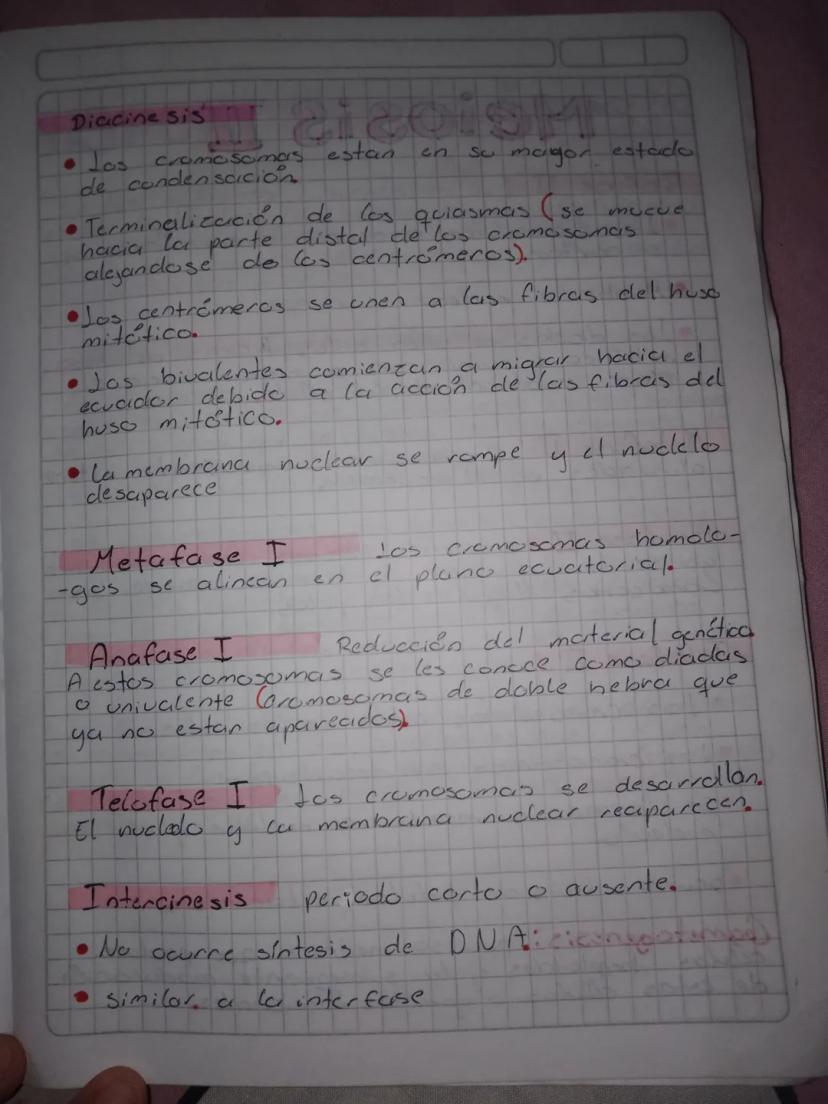 Diacinesis
• Los cromosomas estan en su mayor estado
de condensación
• Terminalización de los quiasmas (se mueve
hacia la parte distal de los cromosomas
alejandose de los centrómeros).
• Los centrómeros se unen a las fibras del huso
mitótico.
• Los bivalentes comienzan a migrar hacia el
ecuador debido a la acción de las fibras del
huso mitótico.
• La membrana nuclear se rompe y el nucleolo
desaparece
Metafase I Los cromosomas homolo-
-gos se alinean en el plano ecuatorial.
Anafase I Reducción del material genético
A estos cromosomas se les conoce como diadas
o univalente (cromosomas de doble hebra que
ya no estan apareados).
Telofase I Los cromosomas se desarrollan.
El nucleolo y la membrana nuclear reaparecen.
Intercinesis periodo corto o ausente.
• No ocurre síntesis de DNA.
• similar a la interfase